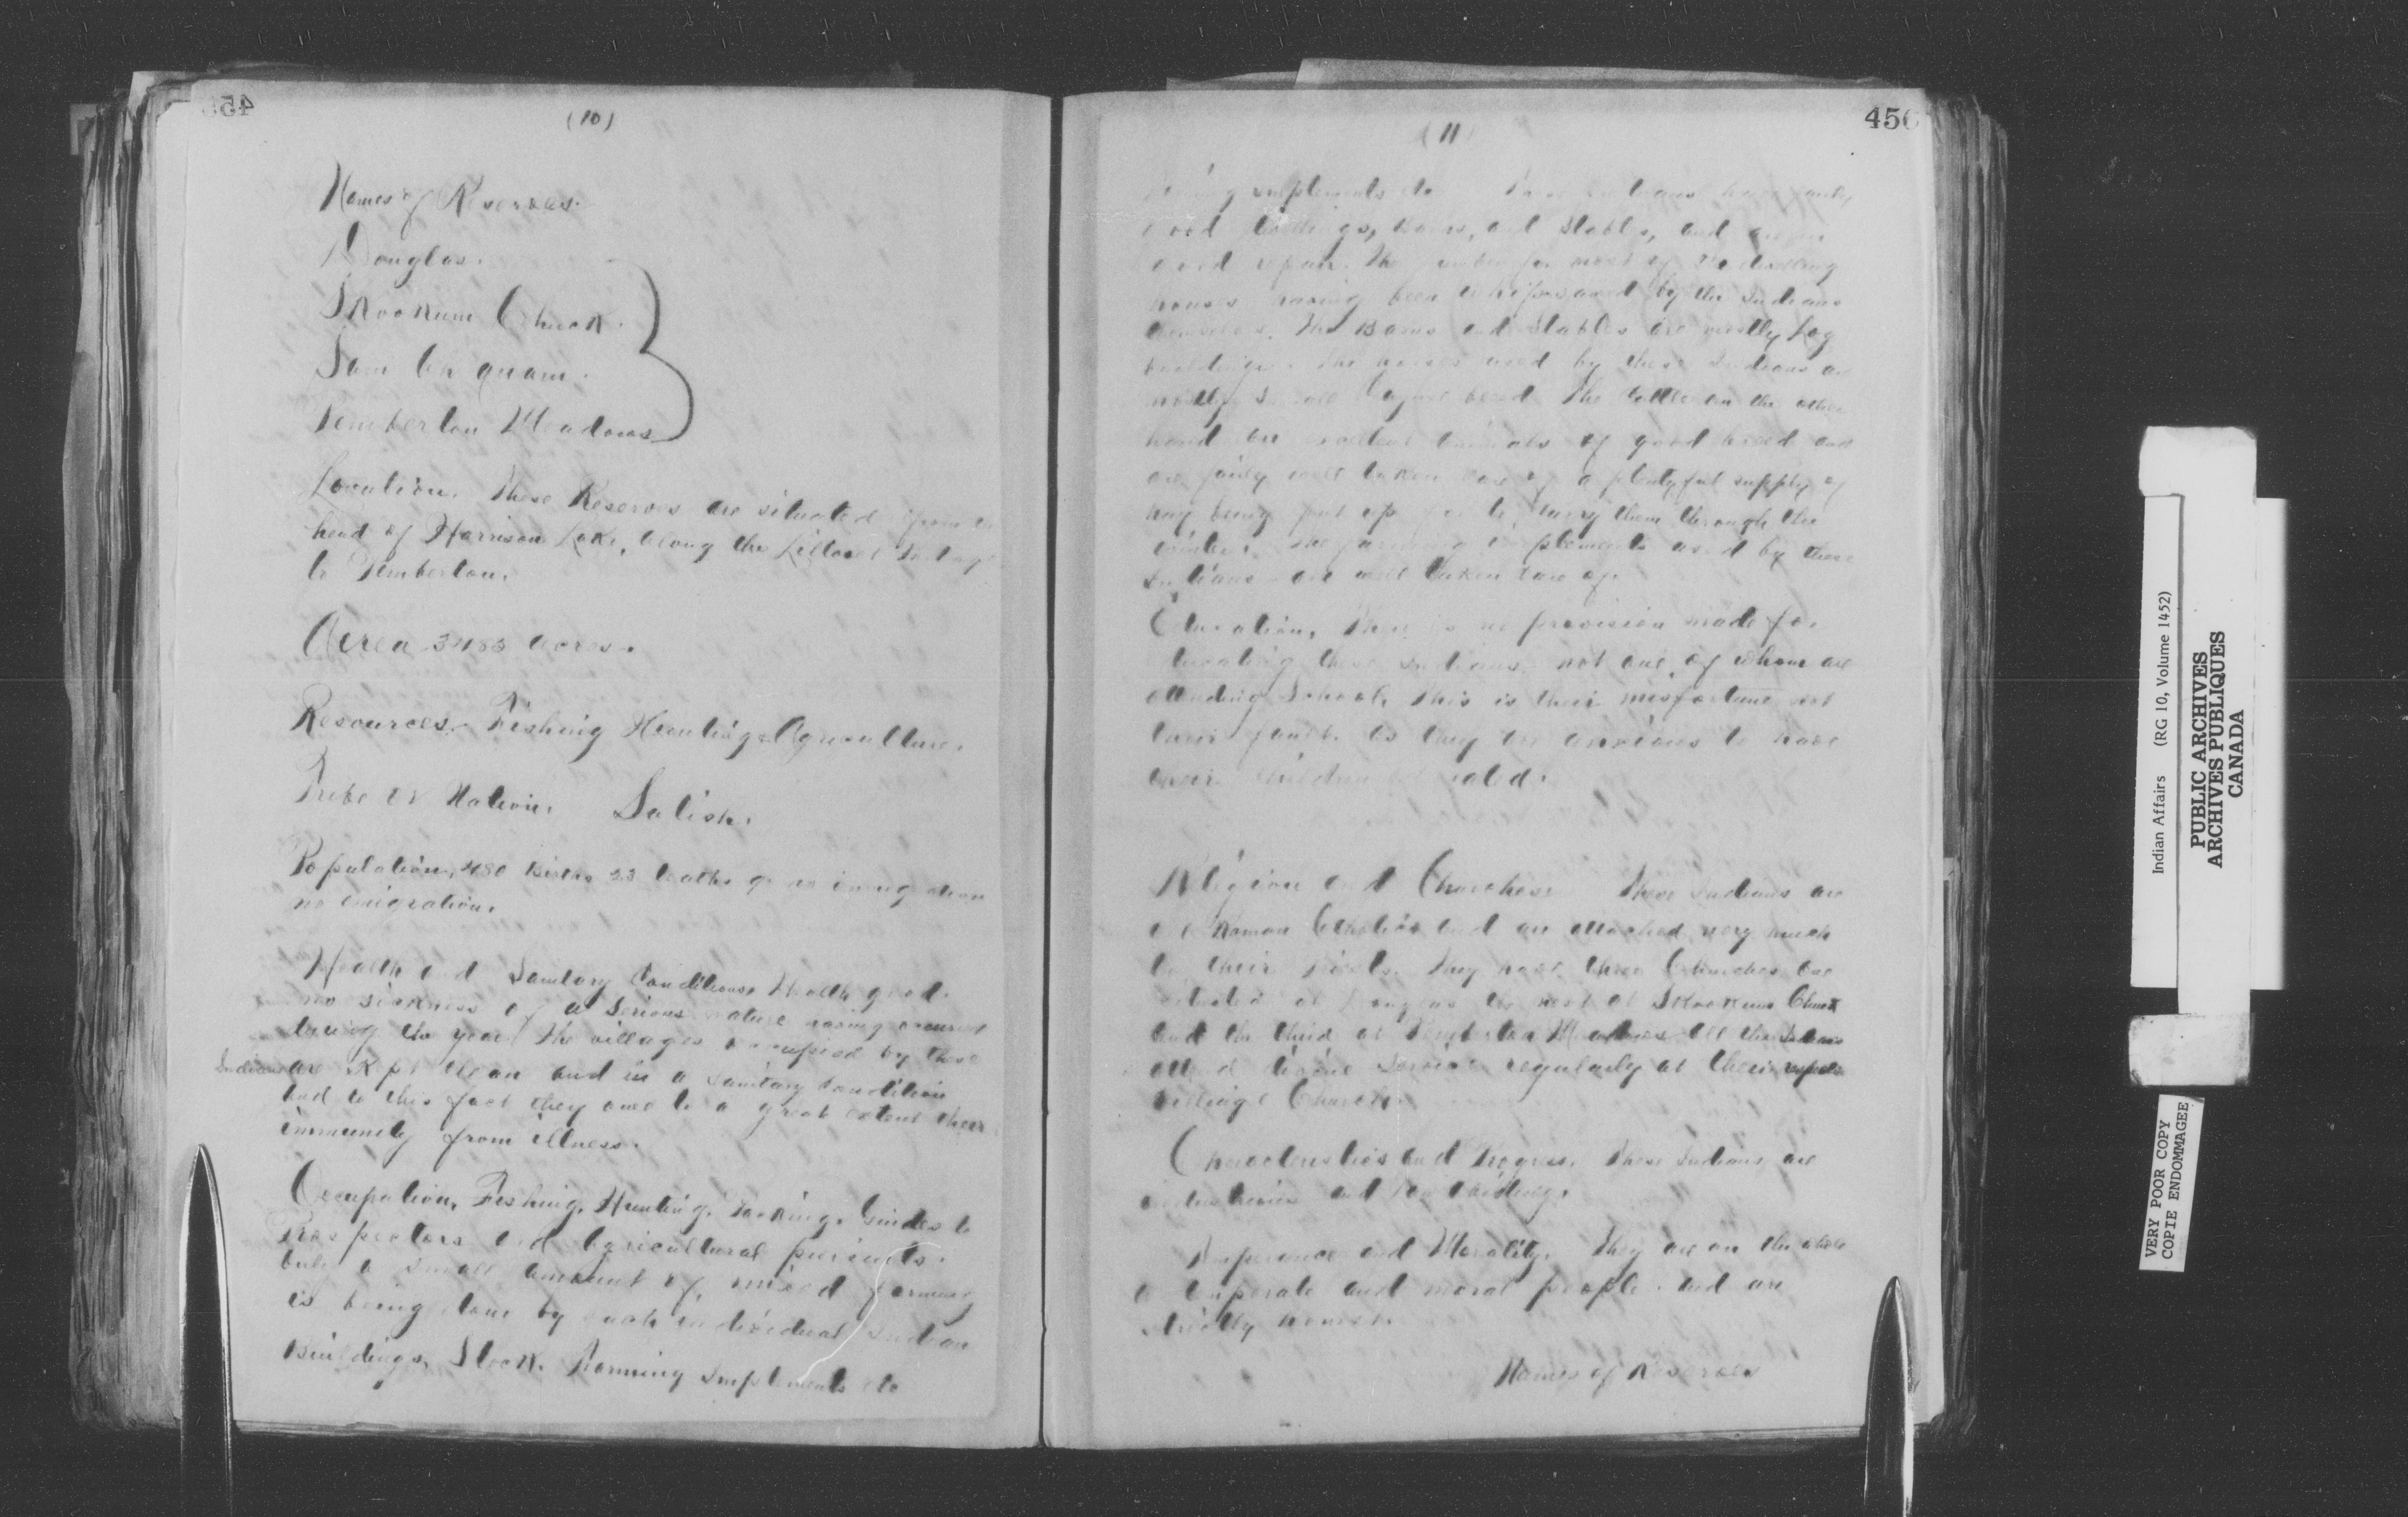 (10)
Names of Reserves.
Douglas.
Skookum Chuck.
Sam Ah quam.
Pemberton Meadows
Location. These Reserves are situated from the
head of Harrison Lake, along the Lillooet Portage
to Pemberton.
Aerea acres.
Resources. Fishing Hunting Agriculture.
Tribe or Nation. Salish.
Population, Births 23 deaths no imigration
no emigration.
Health and Sanitary Conditions, Health good.
no sickness of a Serious nature having occurred
during the year. The villages occupied by these
Indians are kept clean and in a sanitary condition
and to this fact they owe to a great extent their
immunity from illness.
Occupation, Fishing, Hunting, Packing, Guides to
Prospectors and Agricultural pursuits.
but a small amount of mixed farming
is being done by each individual Indian
Buildings, Stock, Farming Implements etc
456
(11)
Farming implements etc These Indians have
good dwellings, Barns, and Stables, and
good repair. The for most of the dwelling
houses having been whipsawed by the Indians
themselves. The Barns and Stables are mostly Log
buildings. The horses used by these Indians are
mostly small Cayuse breed. The cattle on the other
hand are excellent animals of good breed and
are fairly well taken care of a plentyful supply of
hay being put up to carry them through the
winter. The farming implements used by these
Indians are well taken care of.
Education, There is no provision made for
educating these Indians, not one of whom are
attending School, this is their misfortune not
their fault. as they are anxious to have
their children educated.
Religion and Churches. These Indians are
all Roman Catholics and are attached very much
to their They have three Churches one
situated at Douglas the next at Skookum Chuck
and the third at Pemberton Meadows All the Indians
attend divine Service regularly at their
village Church.
Characteristics and Progress. These Indians are
industrious and law abiding.
Temperance and Morality. They are on the whole
a temperate and moral people. and are
strictly honest.
Names of Reserves
Indian Affairs (RG 10, Volume 1452)
PUBLIC ARCHIVES
ARCHIVES PUBLIQUES
CANADA
VERY POOR COPY
COPIE ENDOMMAGEE